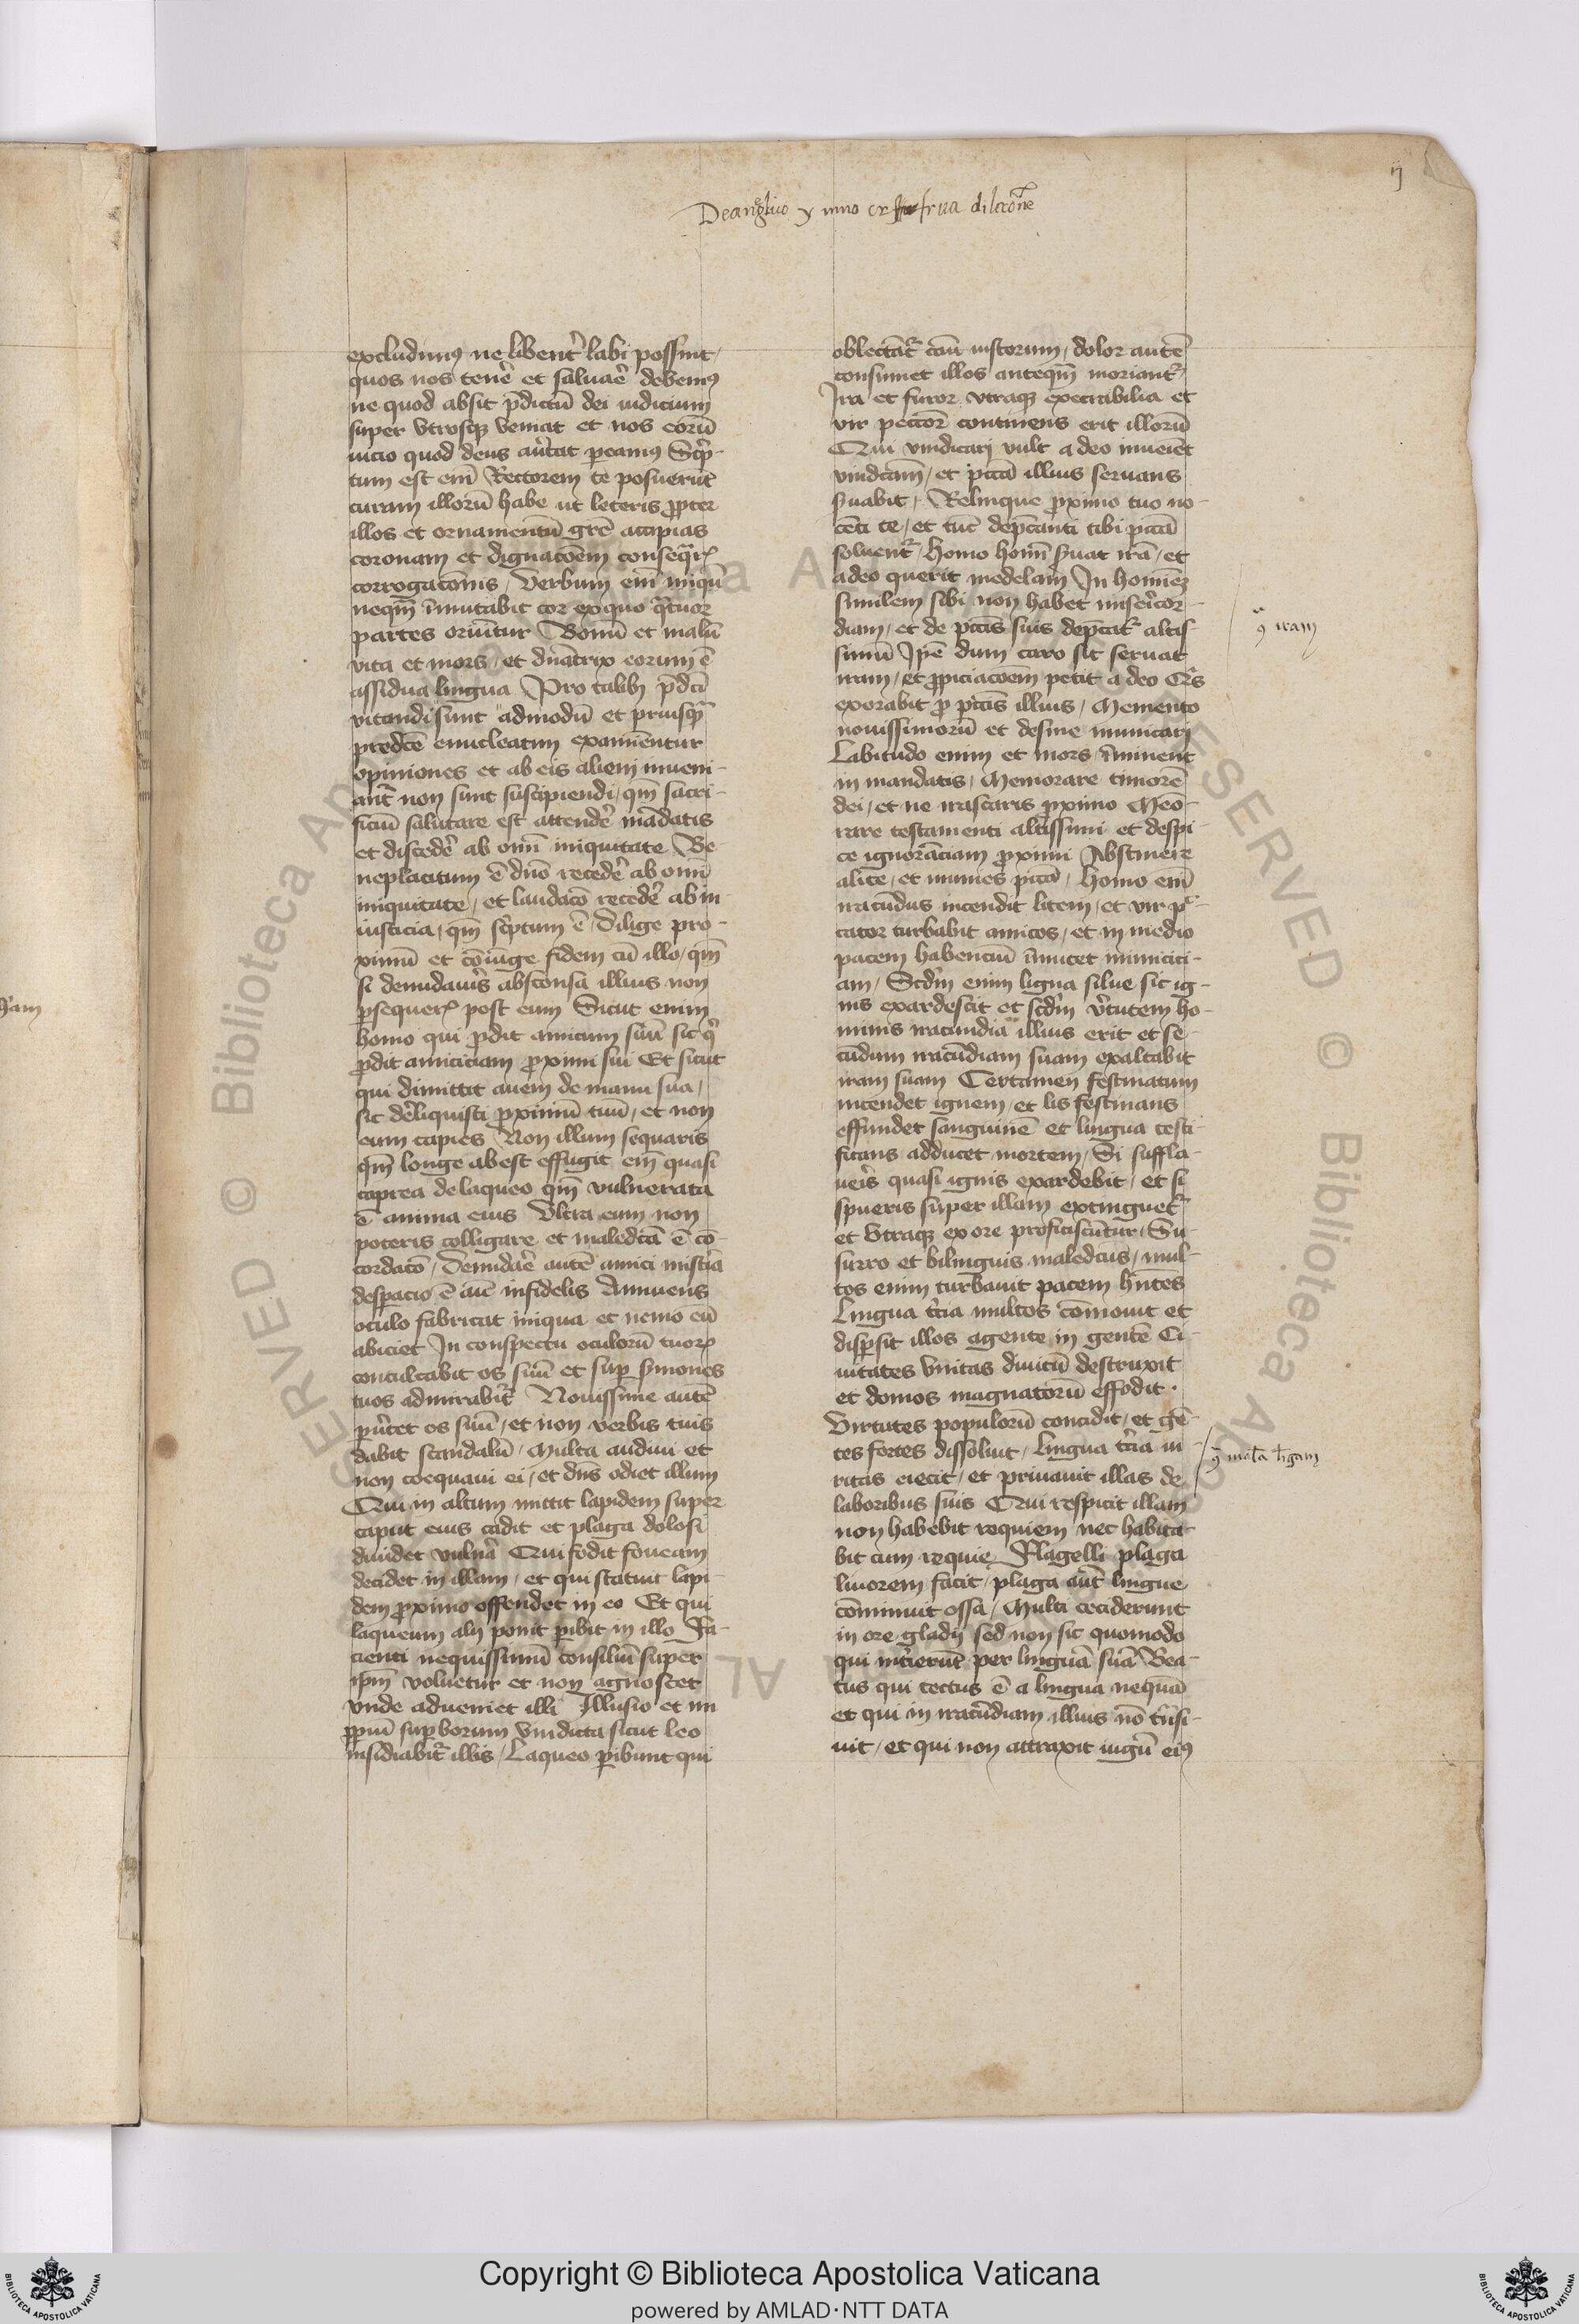 ij
excludimꝯ ne libent̄ labi possint /
quos nos tenē et saluaē debemꝯ
ne quod absit p̄dictū dei iudicium
super vtrosqꝫ veniat et nos eorū
uicio quod deus au̇tat peamꝯ Sc̄p-
tum est em̄ Rectorem te posuerūt
curam illorū habe ut leteris ꝓpter
illos et ornamentū grē accipias
coronam et dignacōem conseq̄rꝭ
corrogacōnis / Verbum em̄ iniqū
neqm̄ īmutabit cor ex quo q̄tuor
partes oriūtur Bonū et malū
vita et mors / et dn̄atrix eorum ē
assidua lingua Pro talibꝫ p̄dc̄i
vitandi sunt admodū et priusq̄
predc̄e enucleatim examinentur
opiniones et ab eis alieni inueni-
ant̄ non sunt suscipiendi / qm̄ sacri-
ficiū salutare est attendē mādatis
et discedē ab omī iniquitate Be-
neplacitum ē dn̄o recedē ab omī
iniquitate / et laudacō recedē ab in-
iusticia / qm̄ sc̄ptum ē / Dilige pro-
ximū et cōiūge fidem cū illo / qm̄
si denudaūis absconsa illius non
ꝑsequerꝭ post eum Sicut enim
homo qui ꝑdit amicum suū sic q̄
ꝑdit amiciciam ꝓximi sui Et sicut
qui dimittit auem de manu sua /
sic dēliquisti ꝓximū tuū / et non
eum capies Non illum sequaris
qm̄ longe abest effugit em̄ quasi
caprea de laqueo qm̄ vulnerata
ē anima eius Vltra eum non
poteris colligare et maledc̄ā ē cō-
cordacō / Denudaē autē amici mist̄ia
despacio ē aīe infidelis Annuens
oculo fabricat iniqua et nemo eū
abiciet In conspectu oculorū tuorꝭ
conculcabit os suū et suꝑ s̄mones
tuos admirabit̄ Nouissime autē
ꝑūtet os suū / et non verbis tuis
dabit scandalū / Multa audiui et
non coequaui ei / et dn̄s odiet illum
Qui in altum mittit lapidem super
caput eius cadit et plaga dolosi
diuidet vulnā Qui fodit foueam
decidet in illam / et qui statuit lapi-
dem ꝓximo offendet in eo Et qui
laqueum alij ponit ꝑibit in illo Fa-
cienti nequissimū consiliū super
ipm̄ voluetur et non agnoscet
vnde adueniet illi Illusio et im
ꝓpiū suꝑborum Vindicta sicut leo
insidiabit̄ illis / Laqueo ꝑibunt qui
oblectāt̄ casū iustorum / dolor autē
consumet illos anteqm̄ moriant̄ /
Ira et furor vtraqꝫ execrabilia et
vir peccōr continens erit illorū
Qui vindicari vult a deo inueiet
vindc̄am / et pccā illius seruans
s̄uabit / Relinque ꝓximo tuo no-
cēti te / et tūc dep̄canti tibi pccā
soluent̄ / Homo homī s̄uat irā / et
a deo querit medelam In homiēꝫ
similem sibi non habet miser̄icor-
diam / et de pccīs suis dep̄cat̄ altis-
simū Ip̄e dum caro sit seruat
iram / et ꝓpiciacōem petit a deo Qͥs
exorabit ꝓ pccīs illius / Memento
nouissimorū et desine inimicari
Labitudo enim et mors īminent
in mandatis / Memorare timorē
dei / et ne irascaris ꝓximo Meō-
rare testamenti altissimi et despi-
ce ignorāciam ꝓximi Abstinere
a lite / et minues pccā / Homo em̄
iracūdus incendit litem / et vir pc̄-
cator turbabit amicos / et in medio
pacem habenciū īmittet inimicici-
am / Scdm̄ enim ligna silue sic ig-
nis exardescit et scdm̄ v̄tutem ho-
minis iracundia illius erit et se-
cūdum iracūdiam suam exaltabit
iram suam Certamen festinatum
incendet ignem / et lis festinans
effundet sanguinē et lingua testi-
ficans adducet mortem / Si suffla-
ueīs quasi ignis exardebit / et si
spueris super illam extinguet̄
et Vtraqꝫ ex ore proficiscūtur / Su-
surro et bilinguis maledc̄us / mul-
tos enim turbauit pacem hn̄tes
Lingua t̄cia multos cōmouit et
disꝑsit illos a gente in gentē Ci-
uitates vnitas diuitū destruxit
et domos magnatorū effodit .
Virtutes populorū concidit / et gē-
tes fortes dissoluit / Lingua t̄cia ui
ritas eiecit / et priuauit illas de
laboribus suis Qui respicit illam
non habebit requiem nec habita-
bit cum requie Flagelli plaga
liuorem facit / plaga aūt lingue
cōminuit ossa / Multi ceciderunt
in ore gladij sed non sic quomodo
qui int̄ierūt per linguā suā Bea-
tus qui tectus ē a lingua nequā
et qui in iracūdiam illius nō t̄nsi-
uit / et qui non attraxit iugū eiꝯ
ꝯ iram